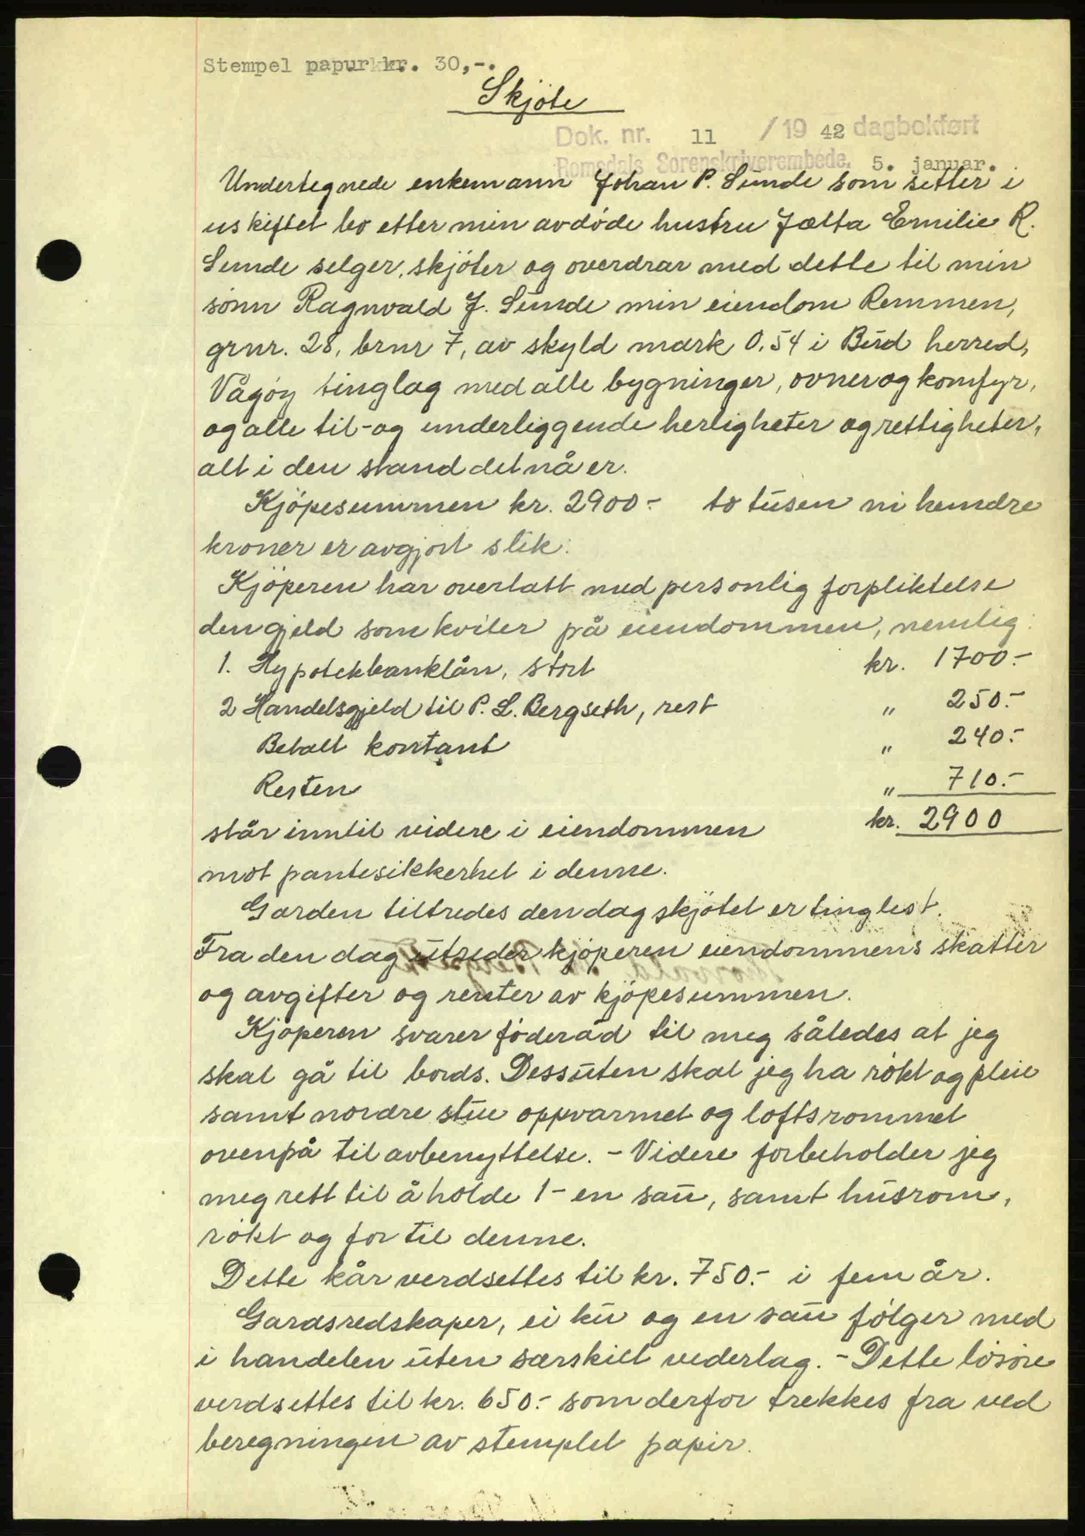 Stempel papur kr. 30,-.
Skjöte
Dok. nr. 11 / 19 42 dagbokført
Romsdals Sorenskriverembede. 5. januar.
Undertegnede enkemann Johan P. Sunde som sitter i
uskiftet bo etter min avdøde hustru Jætta Emilie R.
Sunde selger, skjöter og overdrar med dette til min
sönn Ragnvald J. Sunde min eiendom Remmen,
grnr. 28, brnr 7, av skyld mark 0,54 i Bud herred,
Vågøy tinglag med alle bygninger, ovner og komfyr,
og alle til- og underliggende herligheter og rettigheter,
alt i den stand det nå er.
Kjöpesummen kr. 2900.- to tusen ni hundre
kroner er avgjort slik:
Kjöperen har overtatt med personlig forpliktelse
den gjeld som kviler på eiendommen, nemlig:
1. Hypotekbanklån, stort kr. 1700.-
2 Handelsgjeld til P. L. Bergseth, rest " 250.-
Betalt kontant " 240.-
Resten " 710.-
står inntil videre i eiendommen kr. 2900
mot pantesikkerhet i denne.
Garden tiltredes den dag skjötet er tinglest.
Fra den dag utreder kjöperen eiendommens skatter
og avgifter og renter av kjöpesummen.
Kjöperen svarer föderåd til meg således at jeg
skal gå til bords. Dessuten skal jeg ha rökt og pleie
samt nordre stue oppvarmet og loftsrommet
ovenpå til avbenyttelse. - Videre forbeholder jeg
meg rett til å holde 1 - en sau, samt husrom,
rökt og for til denne.
Dette kår verdsettes til kr. 750.- i fem år.
Gardsredskaper, ei ku og en sau fölger med
i handelen uten særskilt vederlag. - Dette lösöre
verdsettes til kr. 650.- som derfor trekkes fra ved
beregningen av stemplet papir.